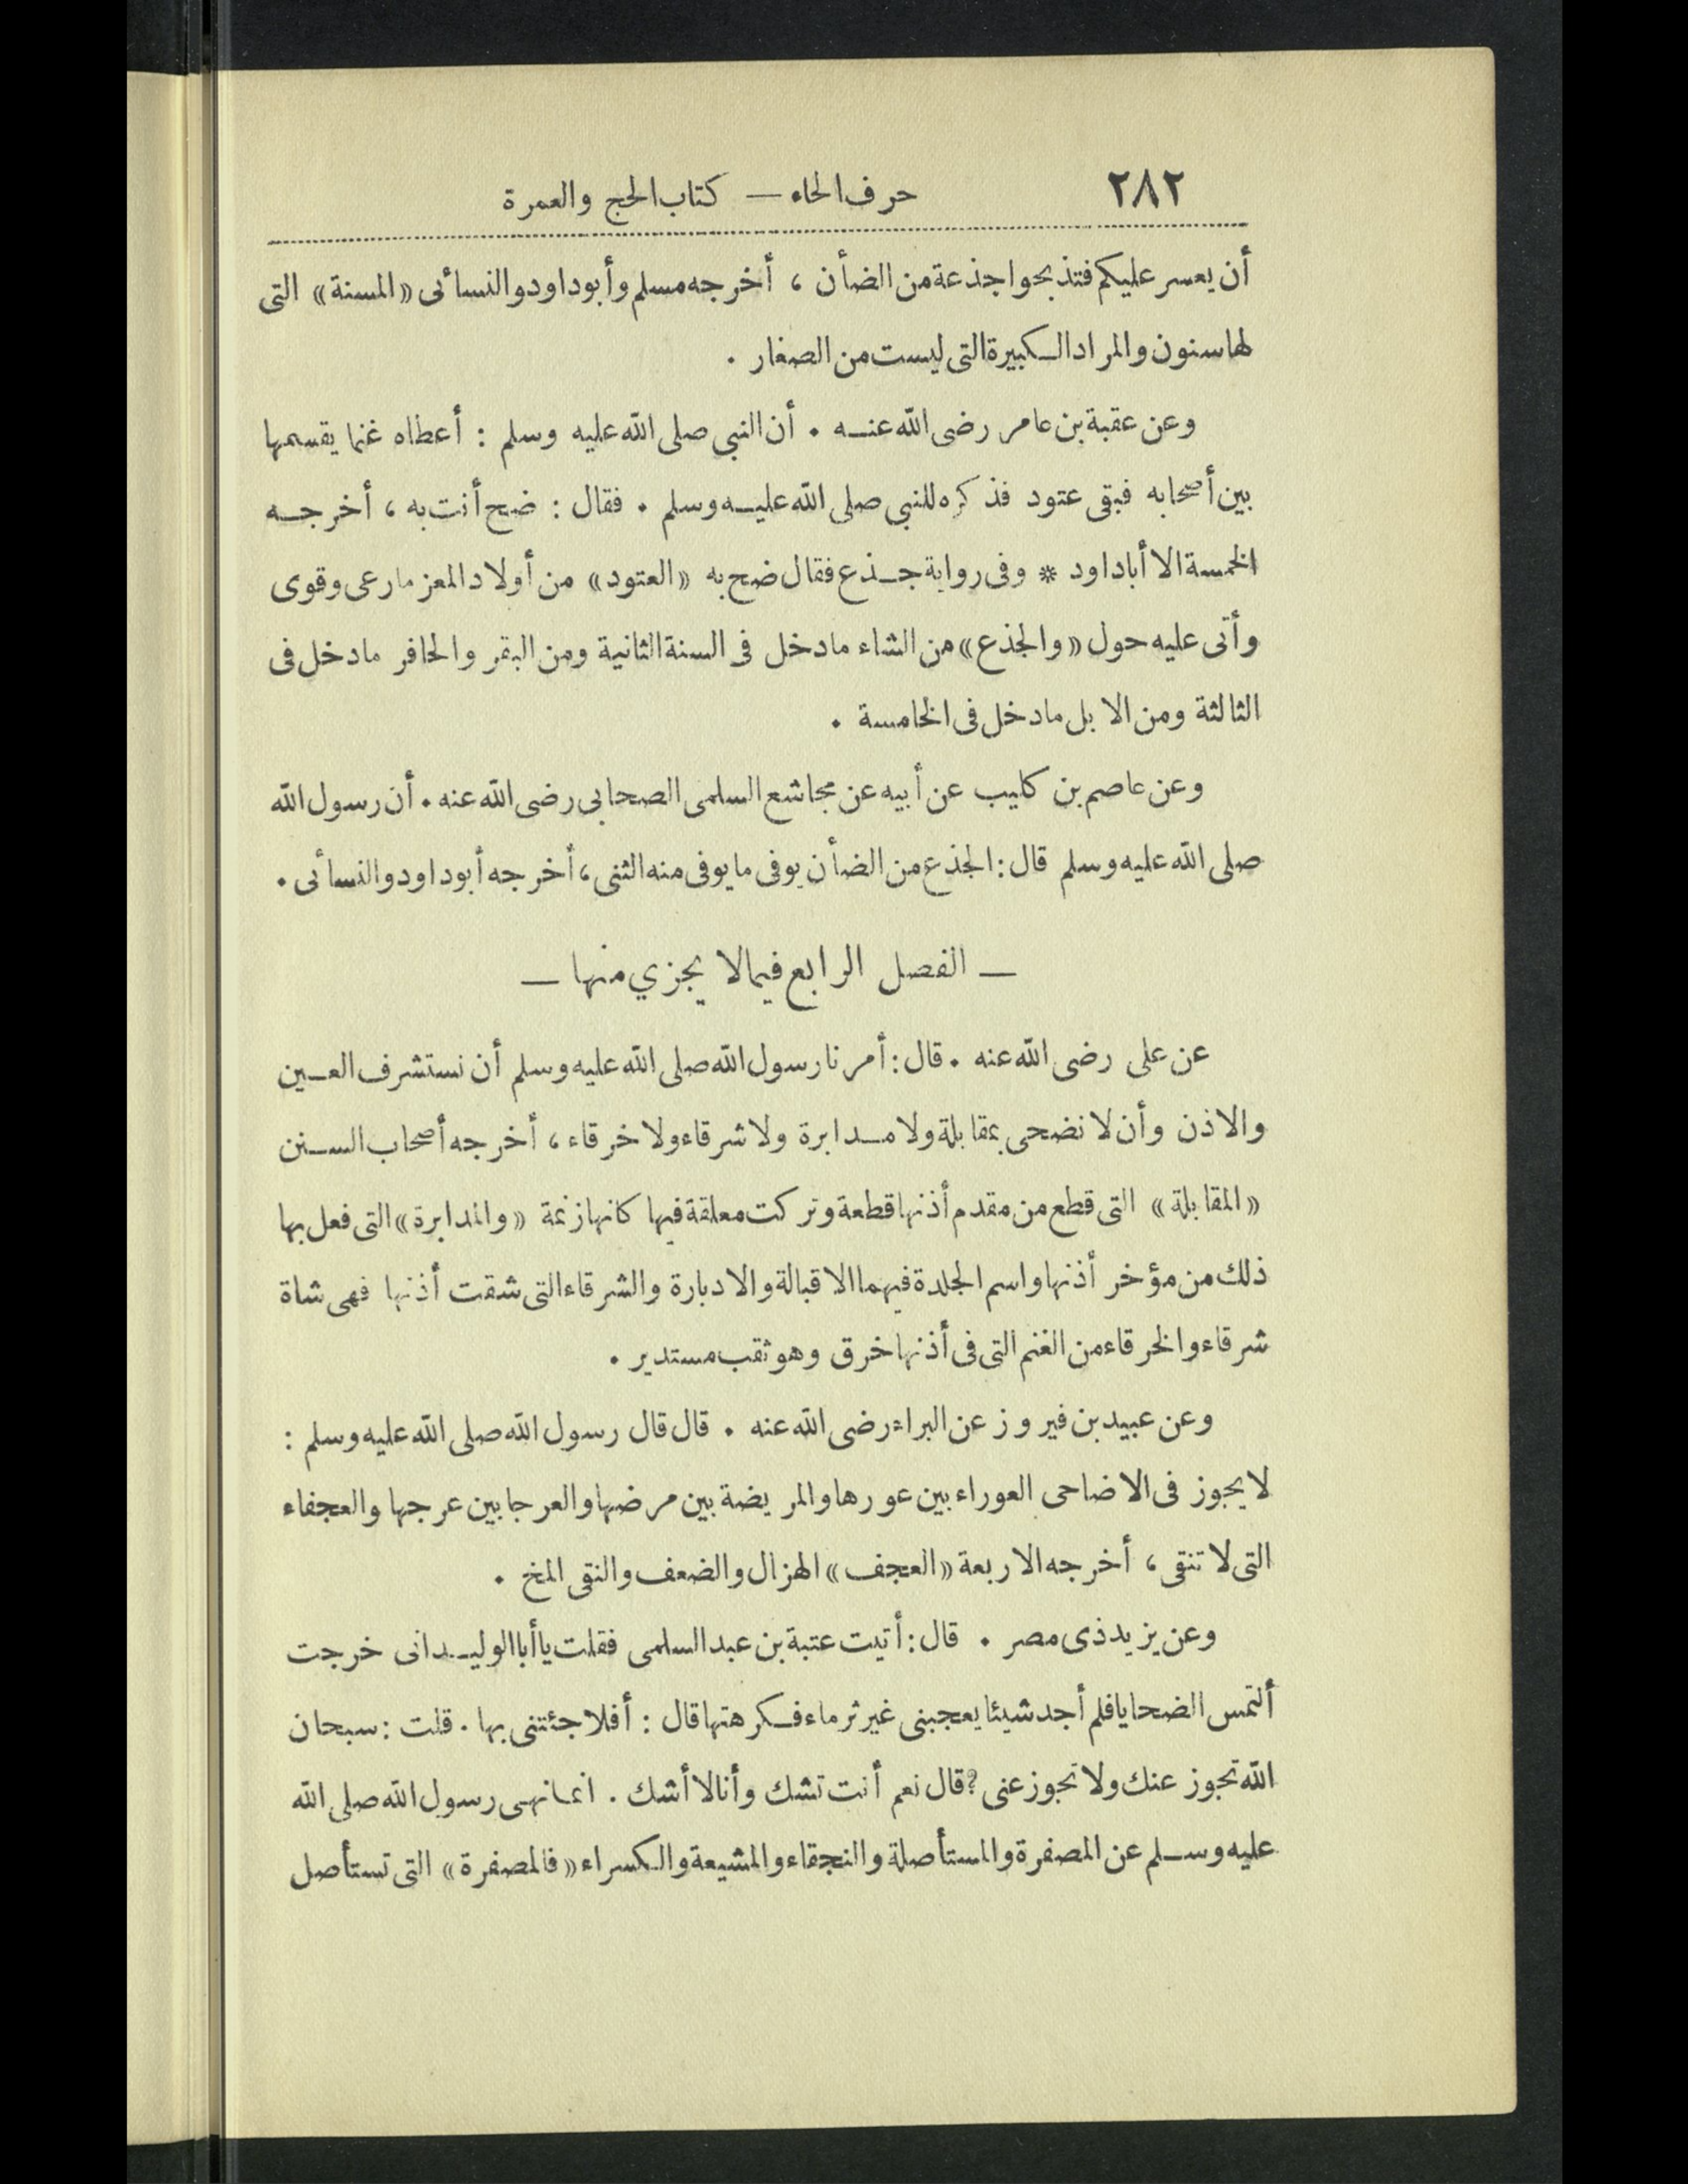 ٢٨٢
حرف الحاء — كتاب الحج والعمرة
أن يعسر عليكم فتذبحوا جذعة من الضأن ، أخرجه مسلم وأبوداود والنسائى «المسنة» التى
لها سنون والمراد الكبيرة التى ليست من الصغار .
وعن عقبة بن عامر رضى الله عنه . أن النبي صلى الله عليه وسلم : أعطاه غنما يقسمها
بين أصحابه فبقى عتود فذكره للنبي صلى الله عليه وسلم . فقال : ضح أنت به ، أخرجه
الخمسة الا أباداود * وفى رواية جذع فقال ضح به «العتود» من أولاد المعز مارعى وقوى
وأتى عليه حول «والجذع» من الشاء مادخل فى السنة الثانية ومن البقر والحافر مادخل فى
الثالثة ومن الابل مادخل فى الخامسة .
وعن عاصم بن كليب عن أبيه عن مجاشع السلمى الصحابى رضى الله عنه . أن رسول الله
صلى الله عليه وسلم قال : الجذع من الضأن يوفى مايوفى منه الثنى ، أخرجه أبوداود والنسائى .
— الفصل الرابع فيمالا يجزي منها —
عن على رضى الله عنه . قال : أمرنا رسول الله صلى الله عليه وسلم أن نستشرف العين
والاذن وأن لا نضحى بمقابلة ولا مدابرة ولا شرقاء ولا خرقاء ، أخرجه أصحاب السنن
«المقابلة» التى قطع من مقدم أذنها قطعة وتركت معلقة فيها كانها زنمة «والمدابرة» التى فعل بها
ذلك من مؤخر أذنها واسم الجلدة فيهما الاقبالة والادبارة والشرقاء التى شقت أذنها فهى شاة
شرقاء والخرقاء من الغنم التى فى أذنها خرق وهو ثقب مستدير .
وعن عبيد بن فيروز عن البراء رضى الله عنه . قال قال رسول الله صلى الله عليه وسلم :
لا يجوز فى الاضاحى العوراء بين عورها والمريضة بين مرضها والعرجا بين عرجها والعجفاء
التى لا تنقى ، أخرجه الاربعة «العجف» الهزال والضعف والنقى المخ .
وعن يزيد ذى مصر . قال : أتيت عتبة بن عبد السلمى فقلت ياأبا الوليد انى خرجت
ألتمس الضحايا فلم أجد شيئا يعجبنى غير ثرماء فكرهتها قال : أفلا جئتنى بها . قلت : سبحان
الله تجوز عنك ولا تجوز عنى ? قال نعم أنت تشك وأنا لا أشك . انما نهى رسول الله صلى الله
عليه وسلم عن المصفرة والمستأصلة والنجقاء والمشيعة والكسراء «فالمصفرة» التى تستأصل